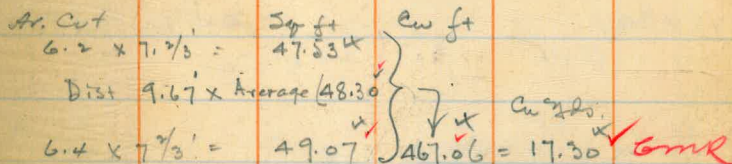 Av. Cut Sq ft Cu ft
6.2 x 7. 2/3' = 47.53
Dist 9.67' x Average (48.30
Cu Yds.
6.4 x 7 2/3' = 49.07 467.06 = 17.30 GMR